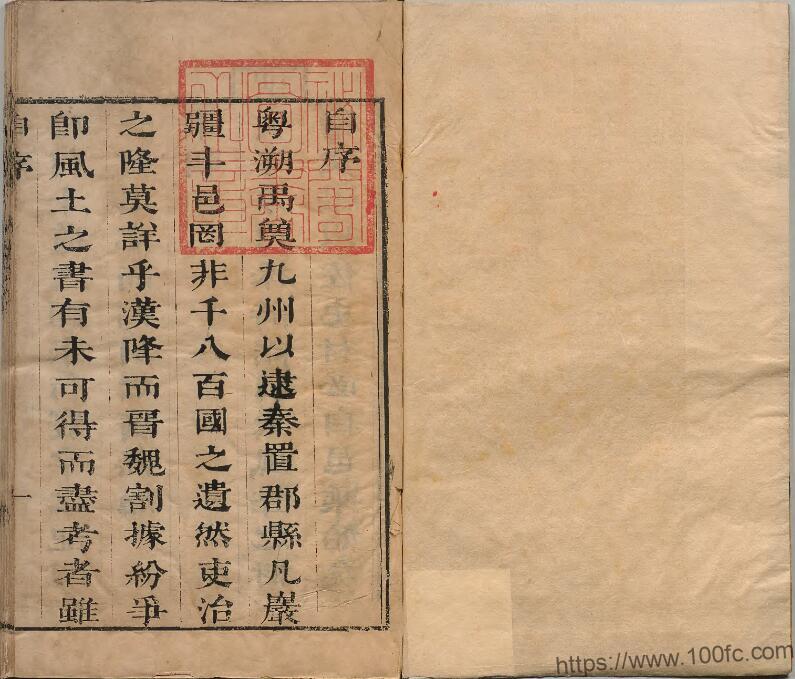 自序
粤溯禹奠九州以逮秦置郡縣凡巖
疆斗邑罔非千八百國之遺然吏治
之隆莫詳乎漢降而晋魏割據紛爭
即風土之書有未可得而盡考者雖
自序
一
https://www.100fc.com